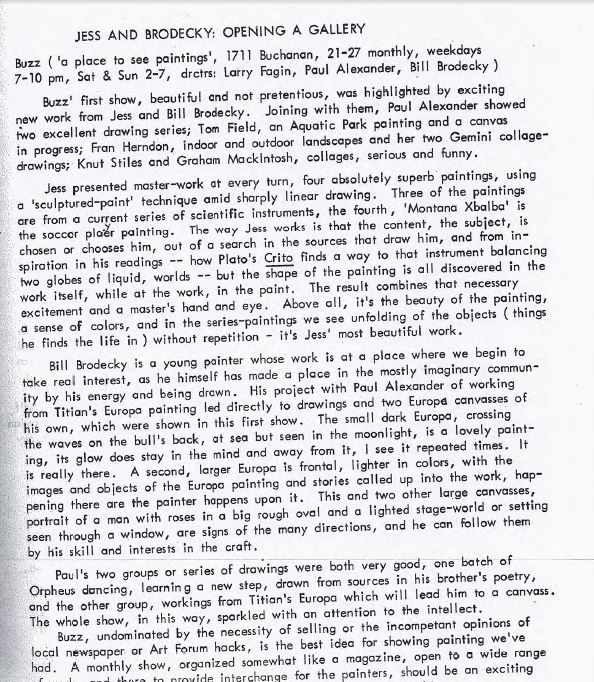 JESS AND BRODECKY: OPENING A GALLERY
Buzz ( 'a place to see paintings', 1711 Buchanan, 21-27 monthly, weekdays
7-10 pm, Sat & Sun 2-7, drctrs: Larry Fagin, Paul Alexander, Bill Brodecky )
Buzz' first show, beautiful and not pretentious, was highlighted by exciting
new work from Jess and Bill Brodecky. Joining with them, Paul Alexander showed
two excellent drawing series; Tom Field, an Aquatic Park painting and a canvas
in progress; Fran Herndon, indoor and outdoor landscapes and her two Gemini collage-
drawings; Knut Stiles and Graham MackIntosh, collages, serious and funny.
Jess presented master-work at every turn, four absolutely superb paintings, using
a 'sculptured-paint' technique amid sharply linear drawing. Three of the paintings
are from a current series of scientific instruments, the fourth, 'Montana Xbalba' is
the soccor player painting. The way Jess works is that the content, the subject, is
chosen or chooses him, out of a search in the sources that draw him, and from in-
spiration in his readings -- how Plato's Crito finds a way to that instrument balancing
two globes of liquid, worlds -- but the shape of the painting is all discovered in the
work itself, while at the work, in the paint. The result combines that necessary
excitement and a master's hand and eye. Above all, it's the beauty of the painting,
a sense of colors, and in the series-paintings we see unfolding of the objects ( things
he finds the life in ) without repetition - it's Jess' most beautiful work.
Bill Brodecky is a young painter whose work is at a place where we begin to
take real interest, as he himself has made a place in the mostly imaginary commun-
ity by his energy and being drawn. His project with Paul Alexander of working
from Titian's Europa painting led directly to drawings and two Europa canvasses of
his own, which were shown in this first show. The small dark Europa, crossing
the waves on the bull's back, at sea but seen in the moonlight, is a lovely paint-
ing, its glow does stay in the mind and away from it, I see it repeated times. It
is really there. A second, larger Europa is frontal, lighter in colors, with the
images and objects of the Europa painting and stories called up into the work, hap-
pening there as the painter happens upon it. This and two other large canvasses,
portrait of a man with roses in a big rough oval and a lighted stage-world or setting
seen through a window, are signs of the many directions, and he can follow them
by his skill and interests in the craft.
Paul's two groups or series of drawings were both very good, one batch of
Orpheus dancing, learning a new step, drawn from sources in his brother's poetry,
and the other group, workings from Titian's Europa which will lead him to a canvass.
The whole show, in this way, sparkled with an attention to the intellect.
Buzz, undominated by the necessity of selling or the incompetant opinions of
local newspaper or Art Forum hacks, is the best idea for showing painting we've
had. A monthly show, organized somewhat like a magazine, open to a wide range
to provide interchange for the painters, should be an exciting